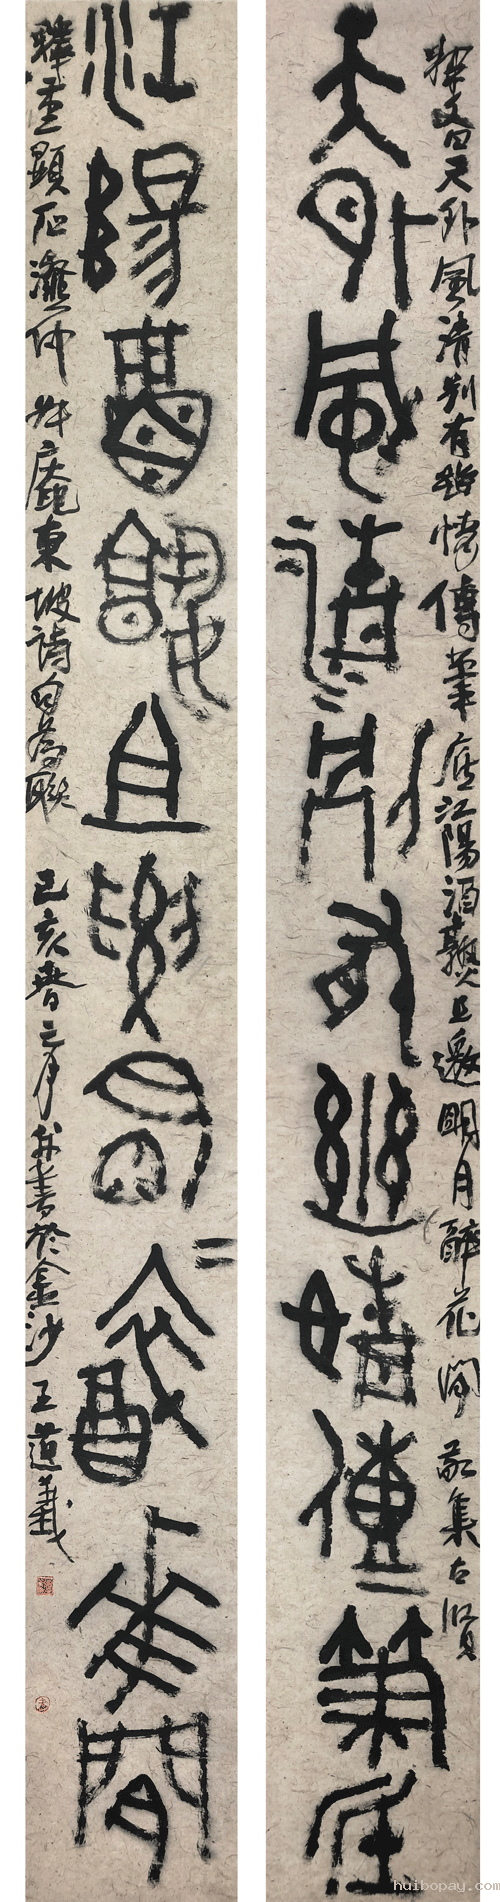 釋文曰天外風清別有幽情傳筆底江陽酒熟且邀明月醉花間 敬集古賢
天外風清別有幽情傳筆底
江陽酒熟且邀明月醉花間
釋重顯 升庵東坡詩句為聯 己亥春二月并書於金沙王道義
huibopay.com